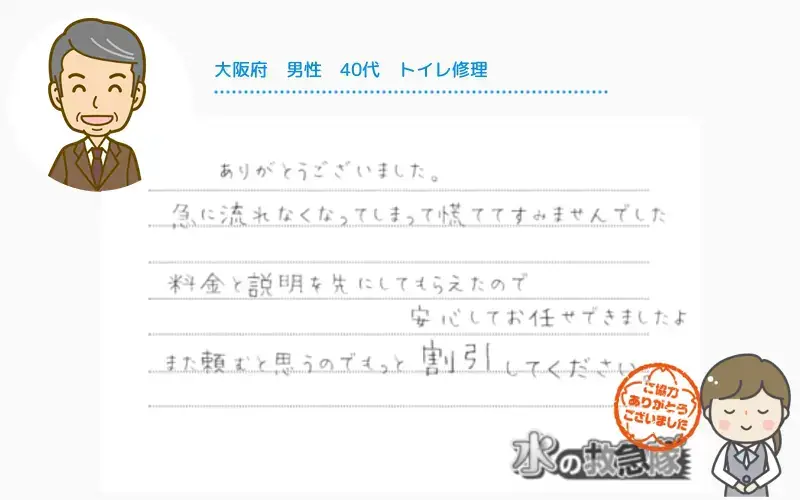 大阪府 男性 40代 トイレ修理
ありがとうございました。
急に流れなくなってしまって慌ててすみませんでした
料金と説明を先にしてもらえたので
安心してお任せできましたよ
また頼むと思うのでもっと割引してください。
ご協力
ありがとう
ございました
水の救急隊